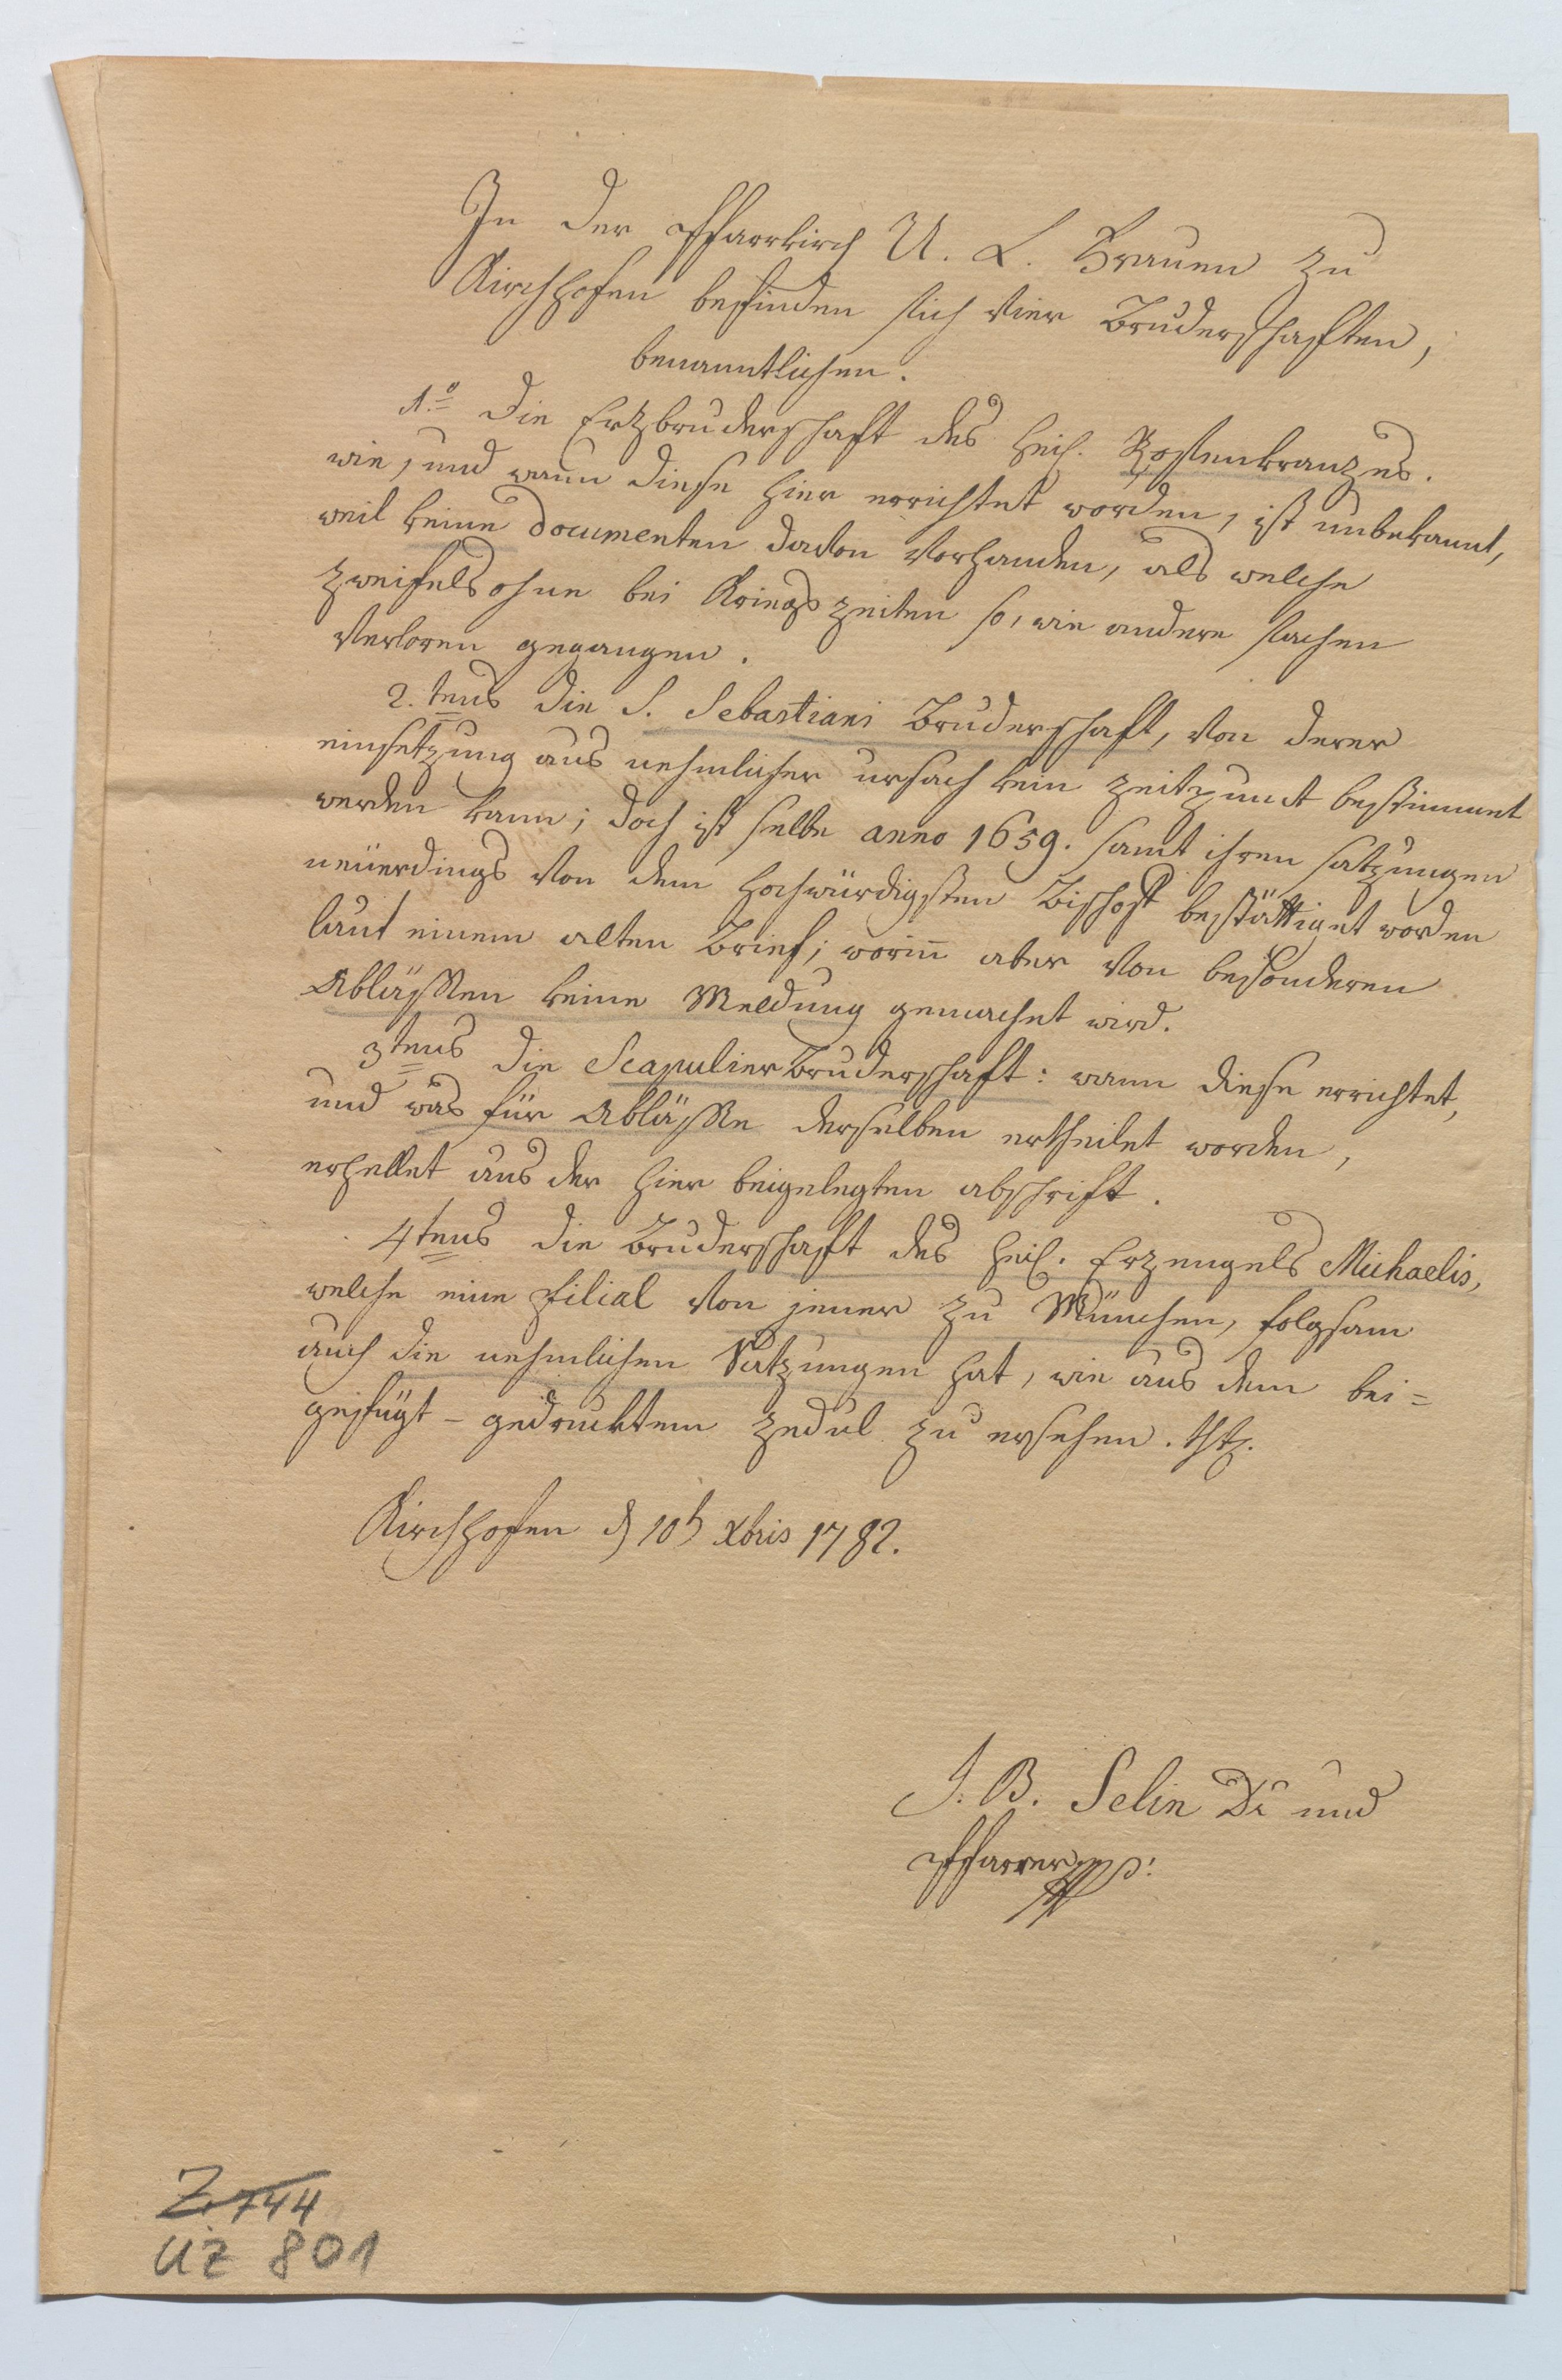 In der Pfarrkirch U. L. Frauen zu
Kirchhofen befinden sich vier Bruderschafften,
benanntlichen.
1.º die Erzbruderschafft des heil. Rosenkranzes.
wie, und wann diese hier errichtet worden, ist unbekannt,
weil keine documenten davon vorhanden, als welche
zweifelsohne bei Kriegszeiten so, wie andere sachen
verloren gegangen.
2.tens die S. Sebastiani Bruderschaft, von derer
einsetzung aus nehmlicher ursach kein zeitpunct bestimmet
werden kann; doch ist selbe anno 1659. samt ihren satzungen
neüerdings von dem hochwürdigsten Bischoff bestättiget worden
laut einem alten Brief; worin̄ aber von besonderen
Ablässen keine Meldung gemachet wird.
3tens die Scapulier Bruderschaft: wann diese errichtet,
und was für Ablässe derselben ertheilet worden,
erhellet aus der hier beigelegten abschrift.
4tens die Bruderschafft des heil. Erzengels Michaelis,
welche eine Filial von jener zu München, folgsam
auch die nehmlichen Satzungen hat, wie aus dem bei=
gefügt - gedrucktem zedul zu ersehen.
Kirchhofen d 10t Xbris 1782.
J. B. Selin Dr und
Pfarrer
Z 744
UZ 801